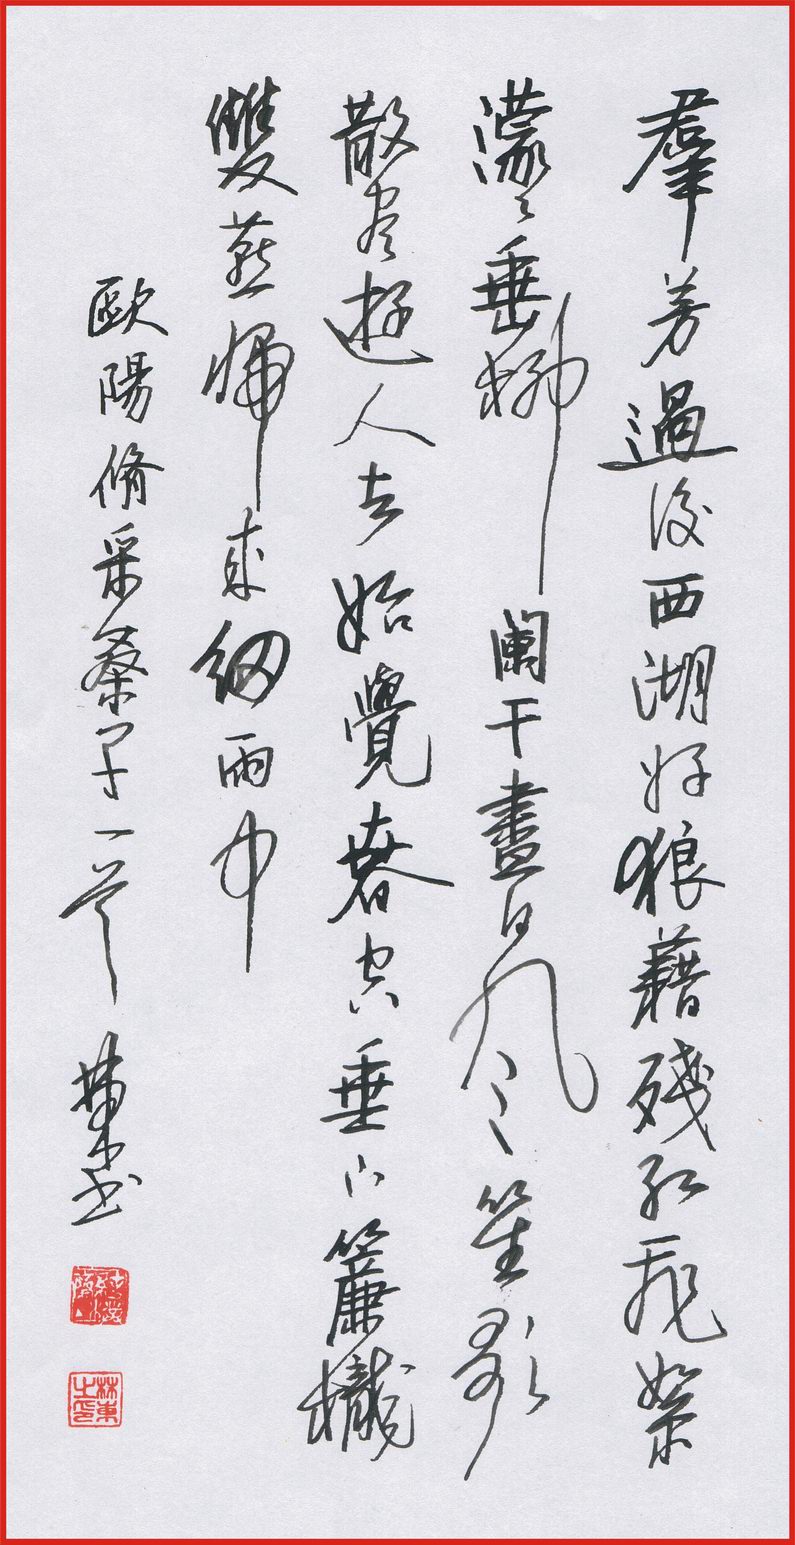 羣芳過後西湖好狼藉殘紅飛絮
濛々垂柳闌干盡日風笙歌
散盡遊人去始覺春空垂下簾櫳
雙燕歸來細雨中
歐陽脩采桑子一首
林東之印